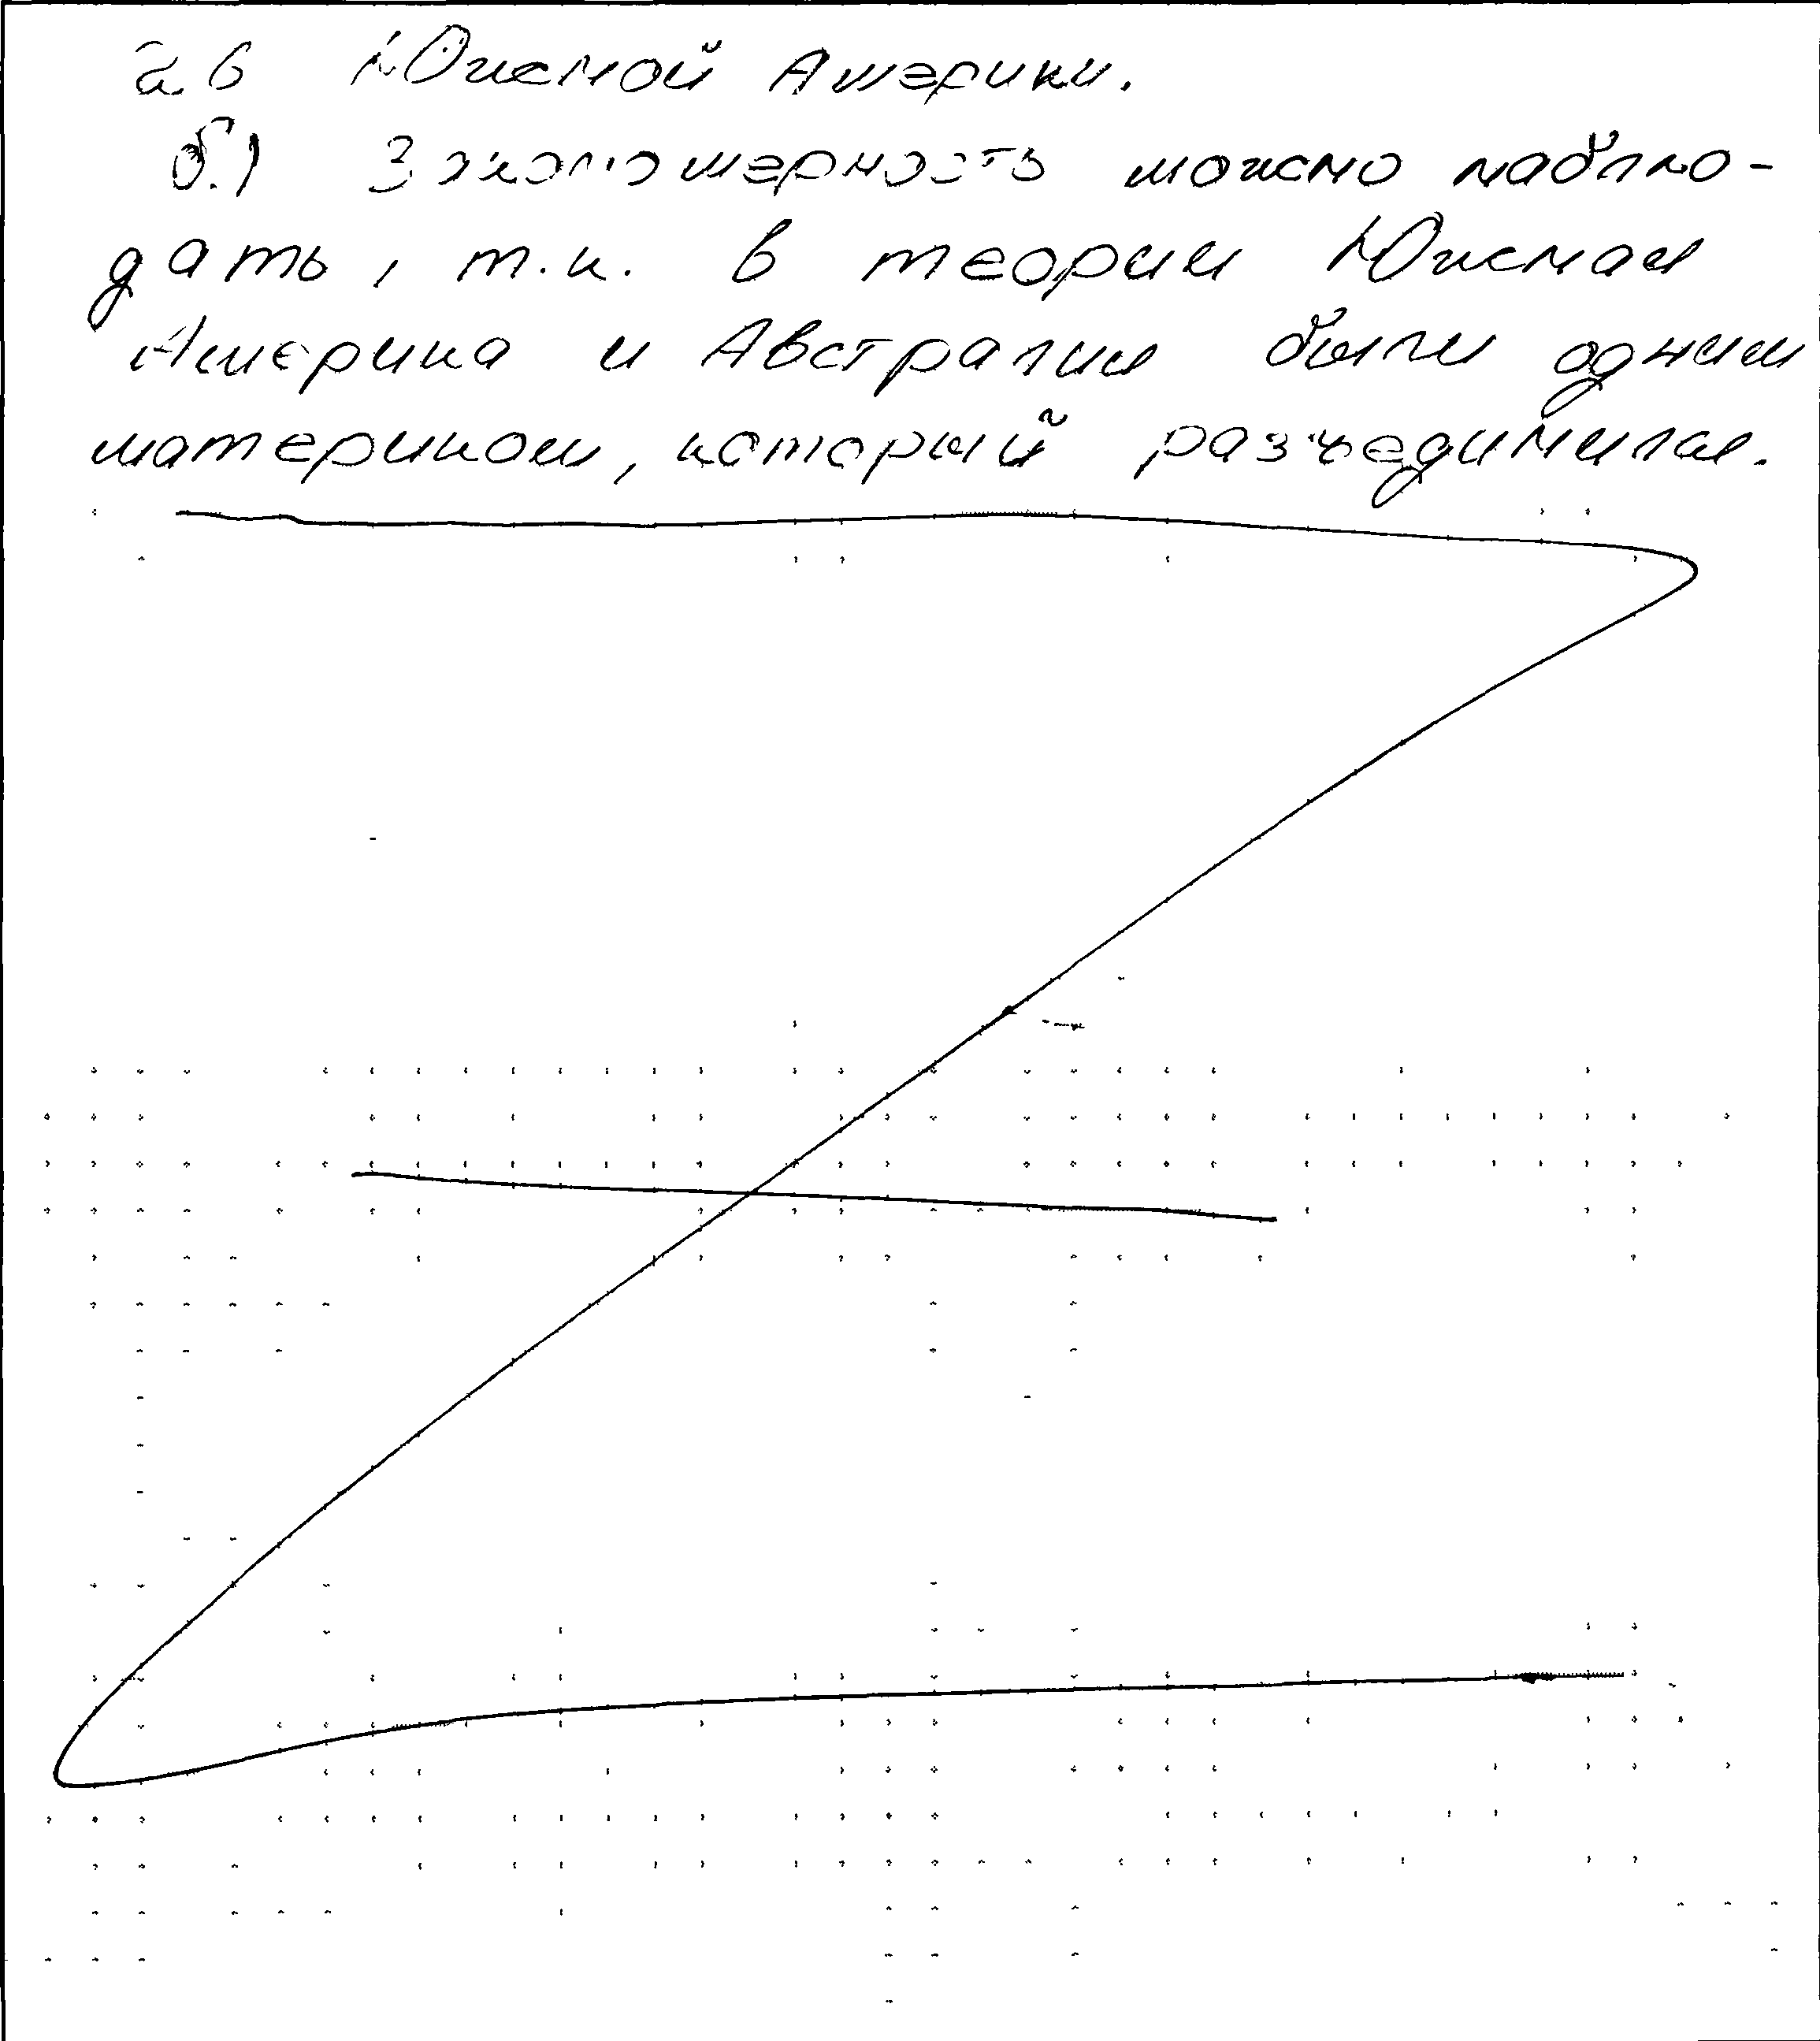 а в Южной Америки.
б.) Закономерность можно наблю-
дать, т.к. в теории Южная
Америка и Австралия были одним
материком, который разъединился.